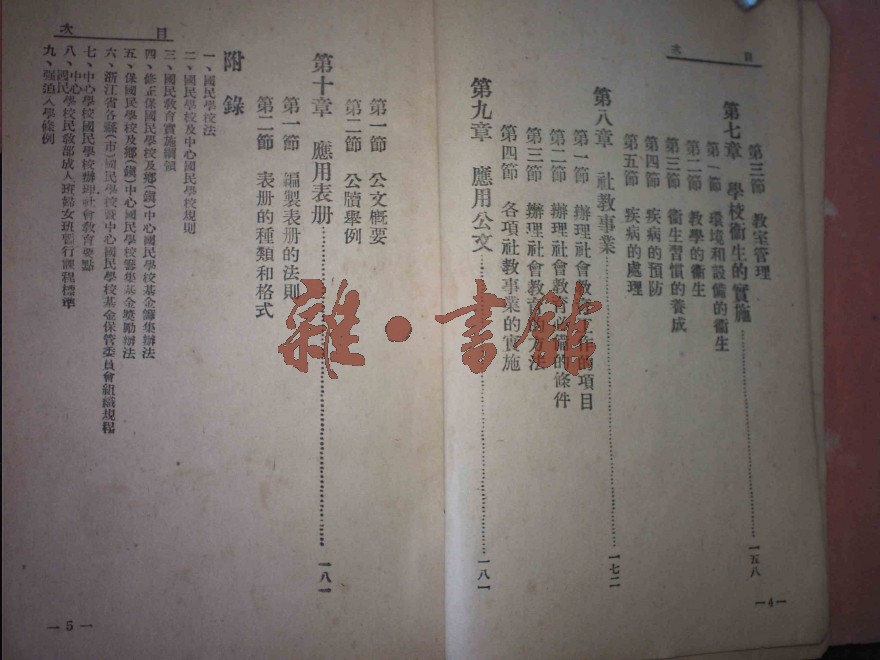 目次
第三節 教室管理
第七章 學校衞生的實施……一五八
第一節 環境和設備的衞生
第二節 教學的衞生
第三節 衞生習慣的養成
第四節 疾病的預防
第五節 疾病的處理
第八章 社教事業……一七二
第一節 辦理社會教育工作的項目
第二節 辦理社會教育必備的條件
第三節 辦理社會教育的方法
第四節 各項社教事業的實施
第九章 應用公文……一八一
—4—
目次
第一節 公文概要
第二節 公牘舉例
第十章 應用表册……一八一
第一節 編製表册的法則
第二節 表册的種類和格式
附錄
一、國民學校法
二、國民學校及中心國民學校規則
三、國民教育實施綱領
四、修正保國民學校及鄉(鎭)中心國民學校基金籌集辦法
五、保國民學校及鄉(鎭)中心國民學校籌集基金獎勵辦法
六、浙江省各縣(市)國民學校暨中心國民學校基金保管委員會組織規程
七、中心學校國民學校辦理社會教育要點
八、中心國民學校民教部成人班婦女班暫行課程標準
九、強迫入學條例
—5—
雜·書館